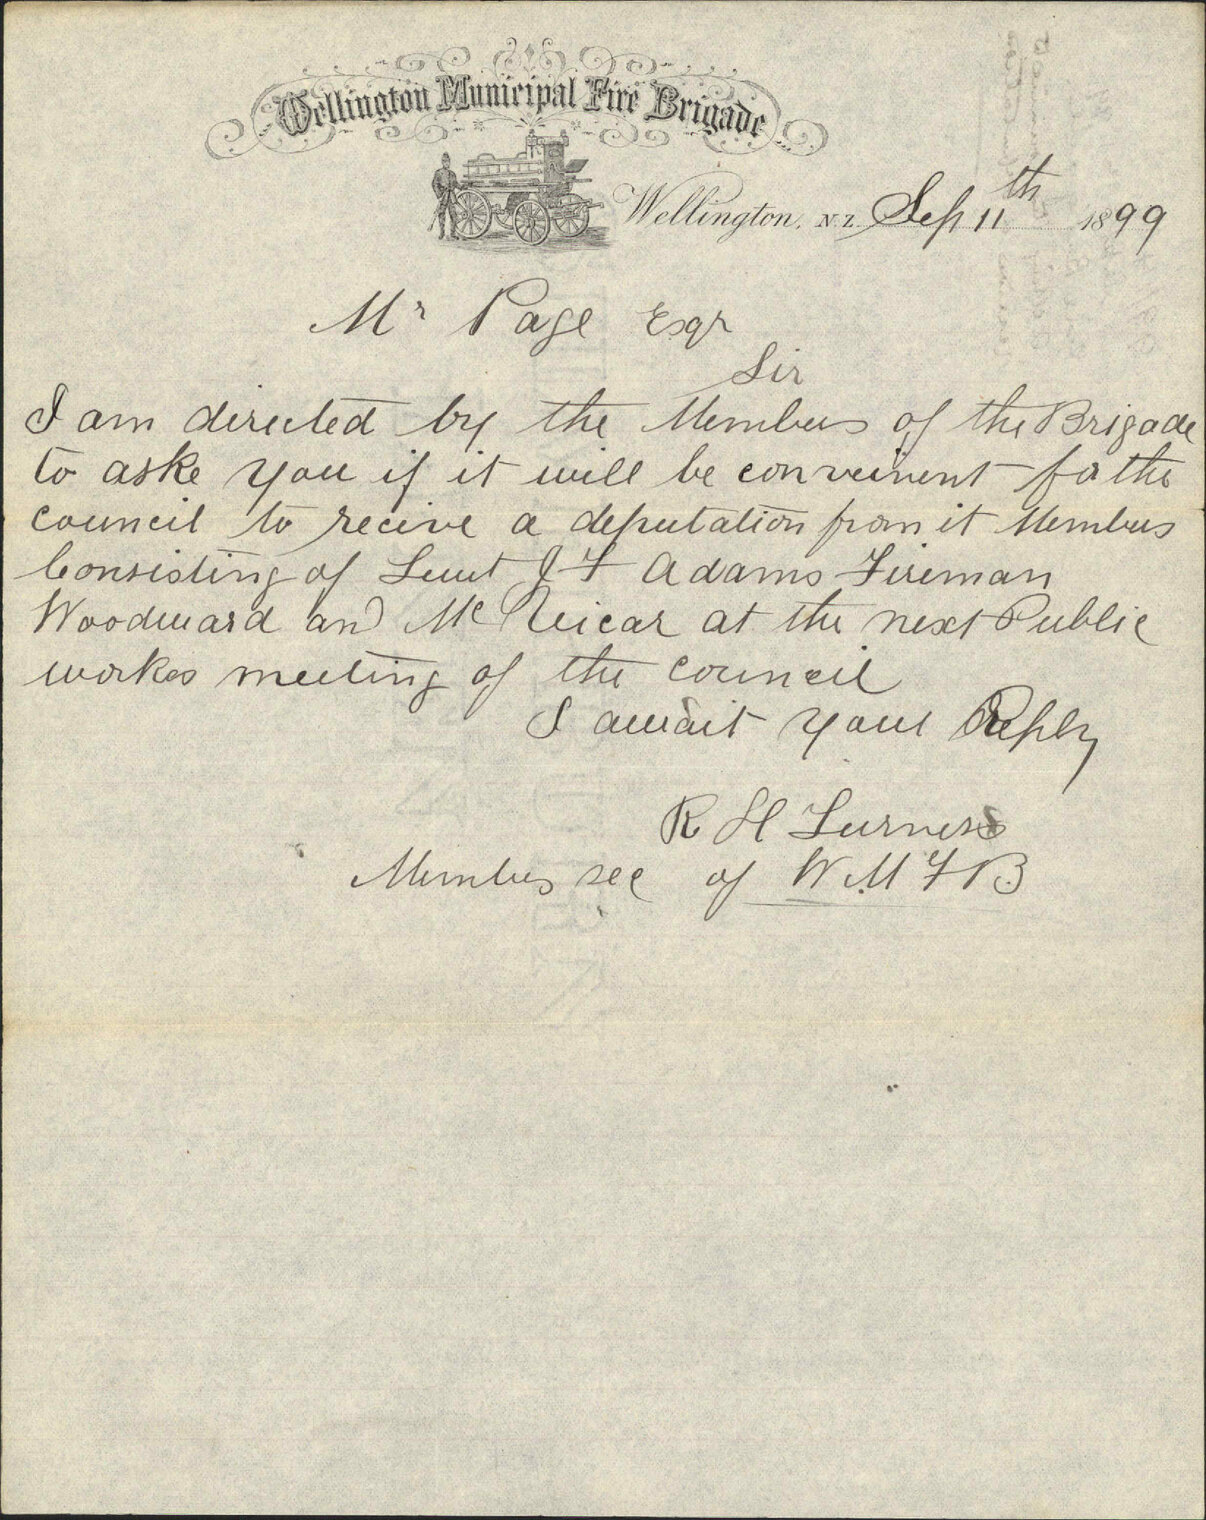 Wellington Municipal Fire Brigade
Wellington, N.Z. Sep 11th 1899
Mr Page Esqr
Sir
I am directed by the Members of the Brigade
to aske you if it will be conveinent for the
council to recive a deputation from it Members
Consisting of Lieut J F Adams Fireman
Woodward and McVicar at the next Public
workes meeting of the council
I await your Reply
R H Turner
Members sec of W.M.F.B